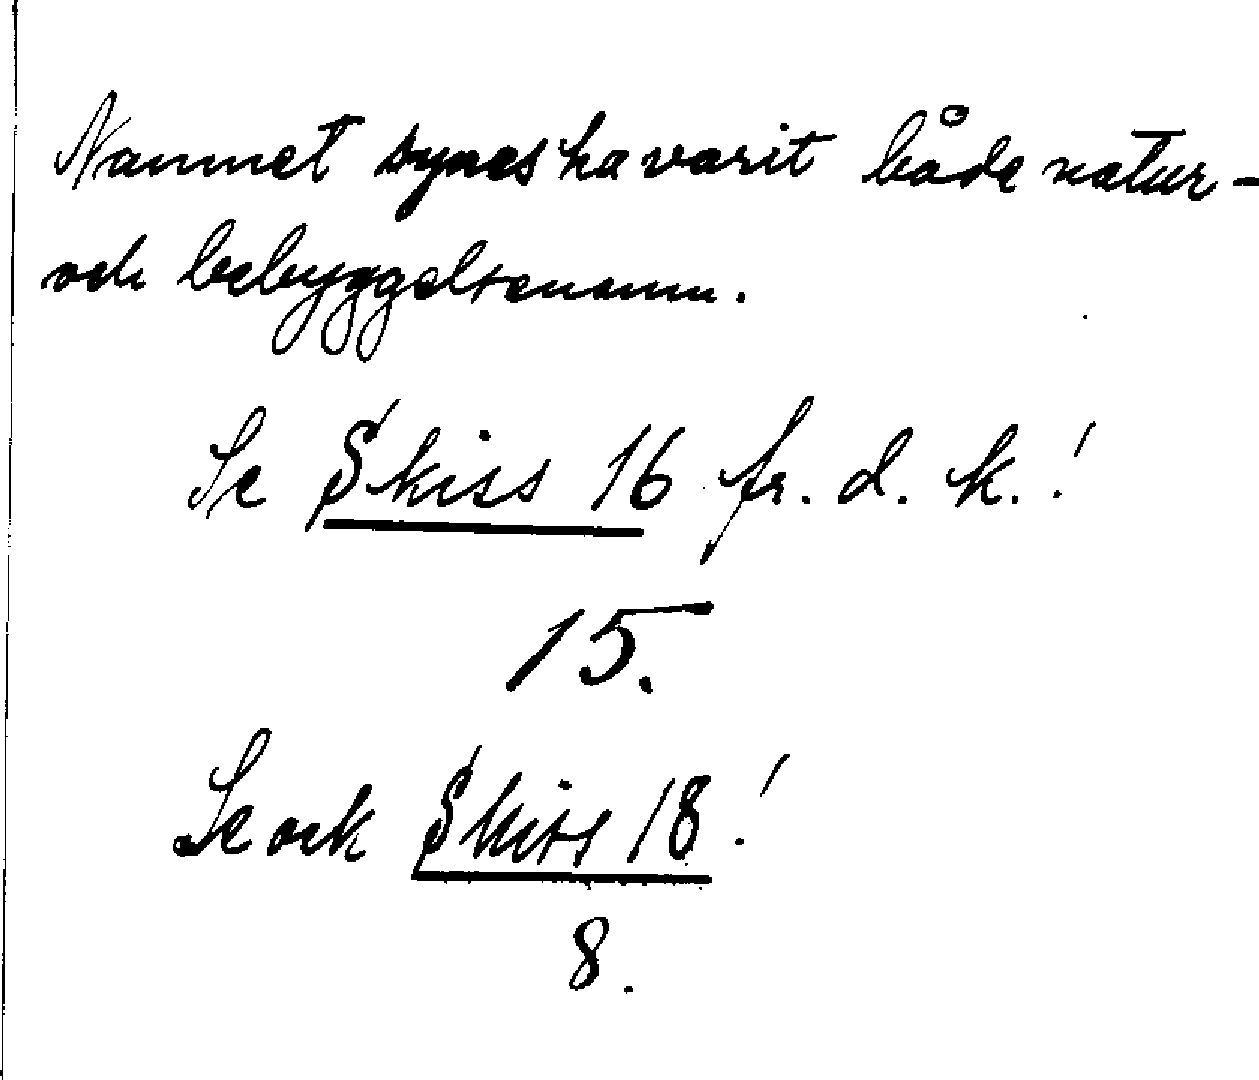 Namnet synes ha varit både natur-
och bebyggelsenamn.
Se Skiss 16 fr. d. k.!
15.
Se ock Skiss 18!
8.